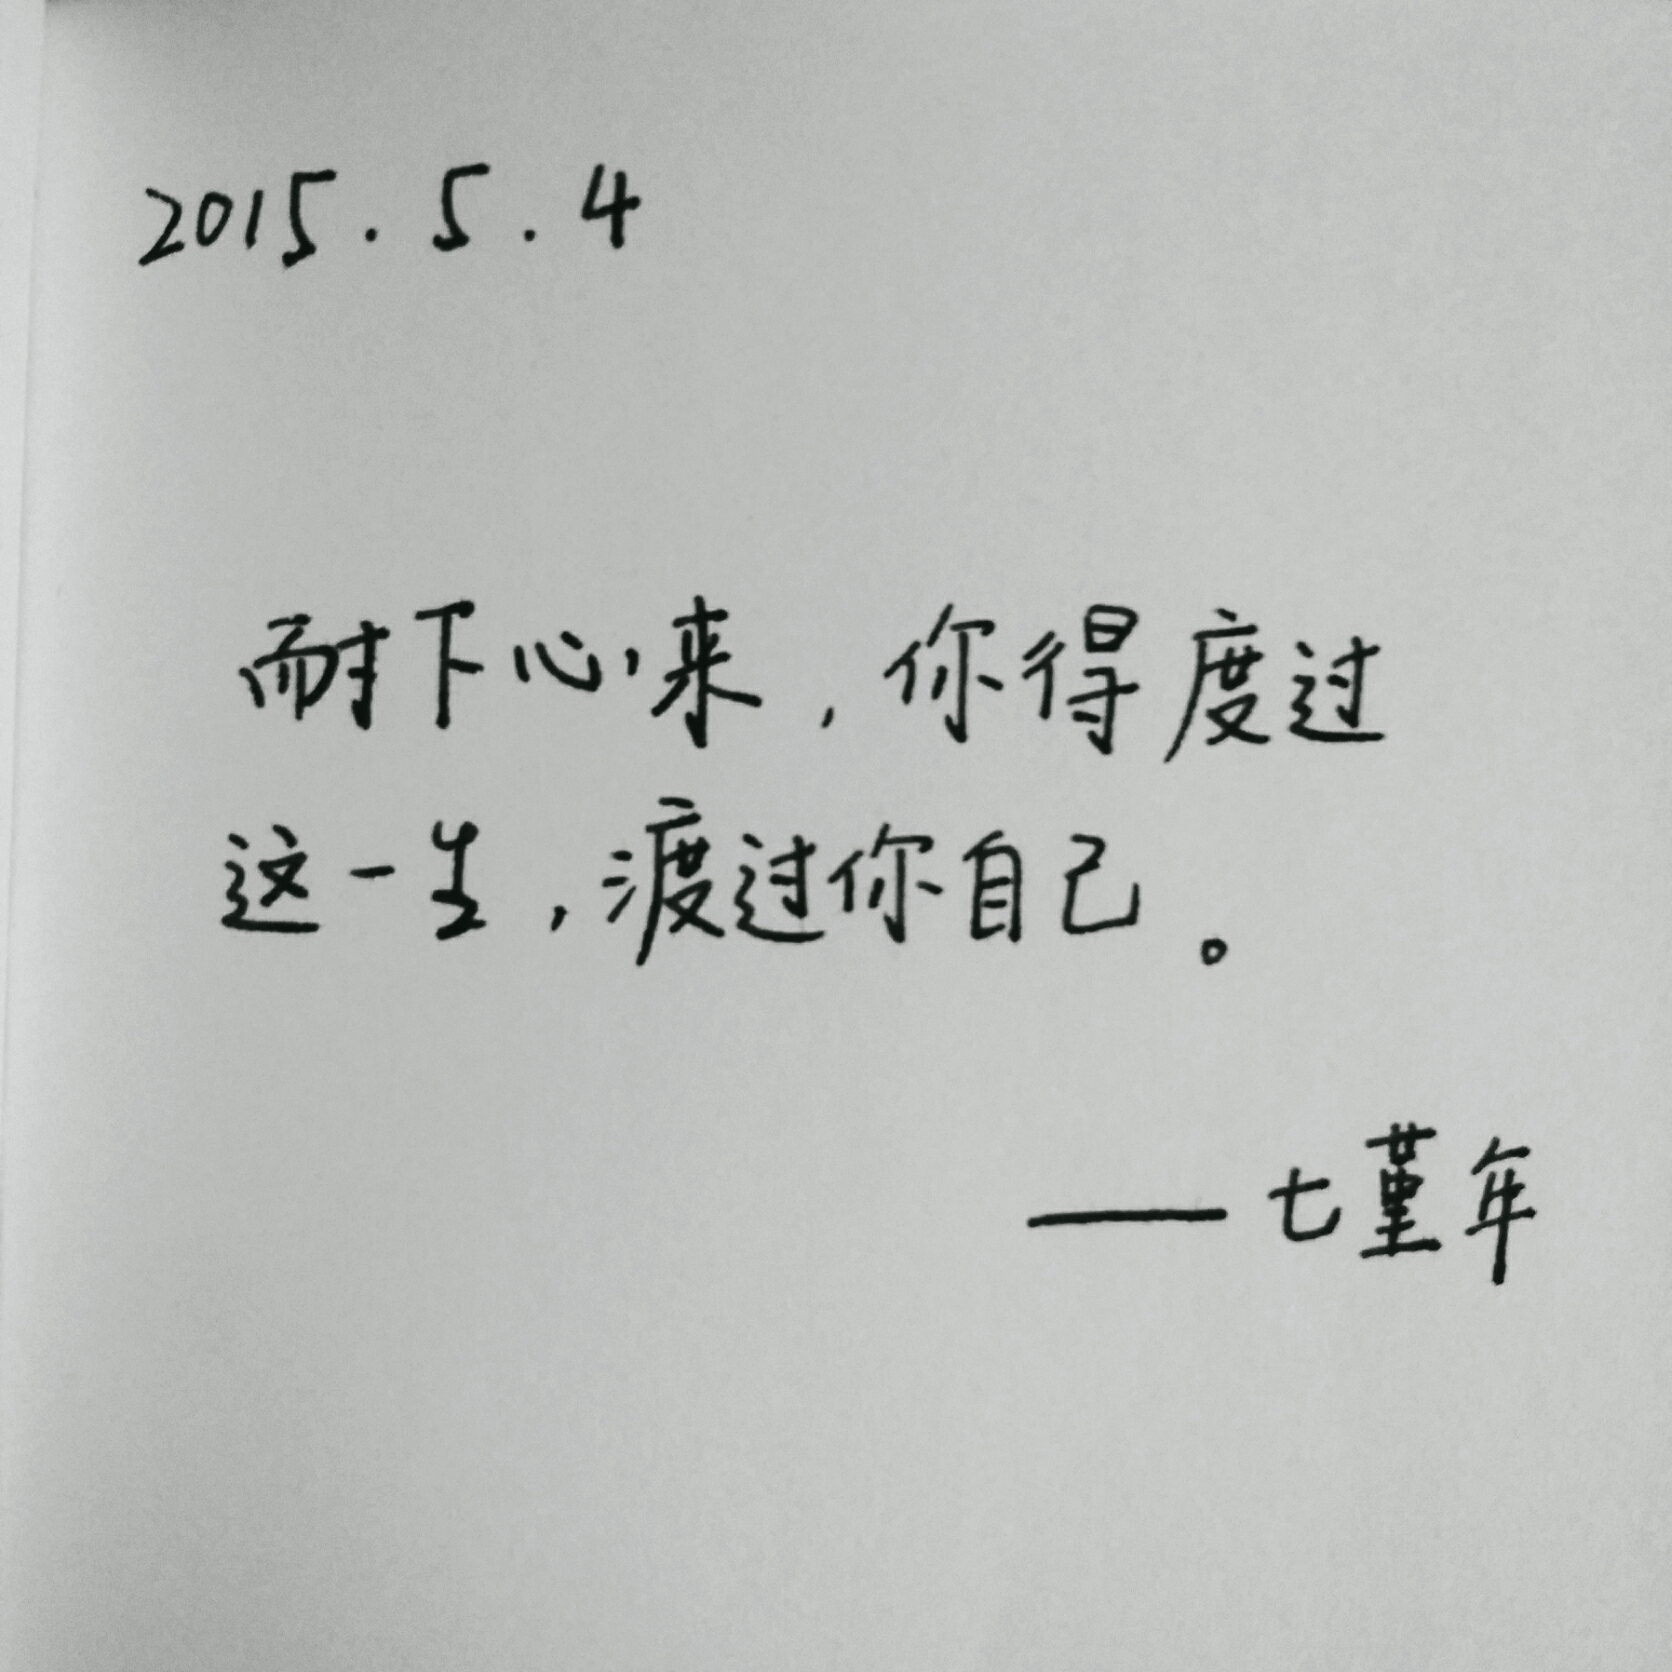 2015.5.4
耐下心来，你得度过
这一生，渡过你自己。
——七堇年